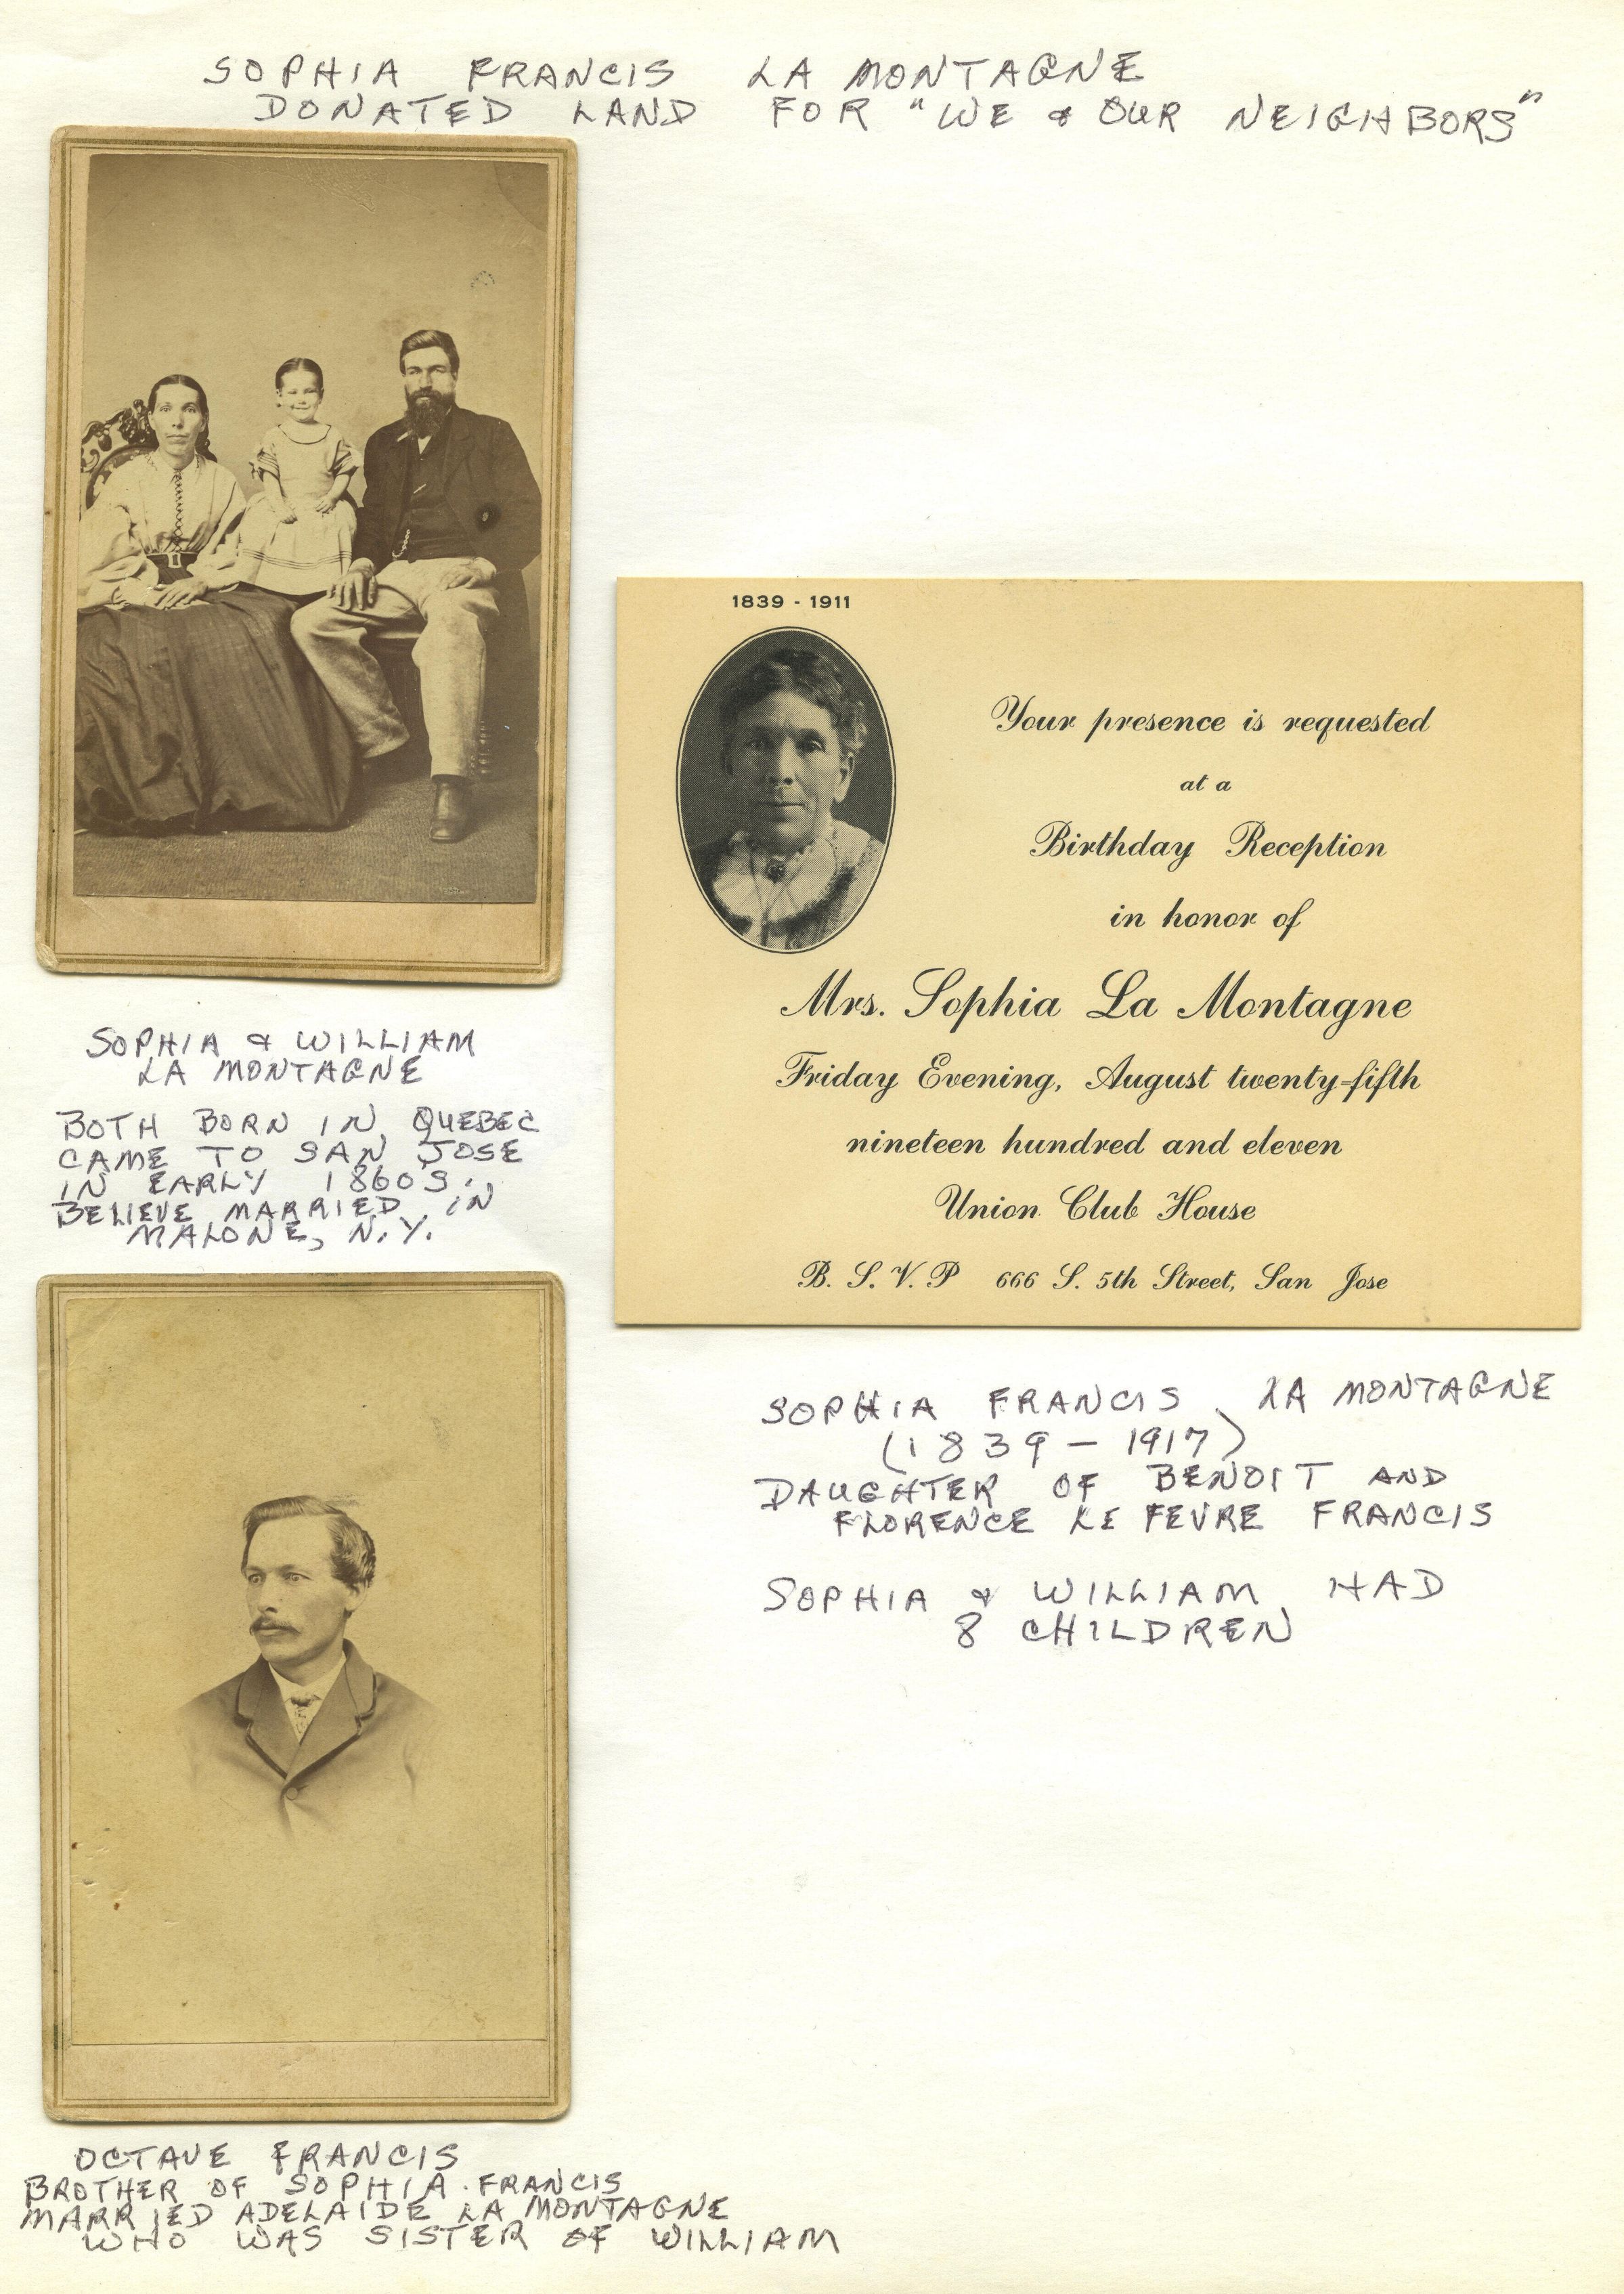 SOPHIA FRANCIS LA MONTAGNE
DONATED LAND FOR "WE & OUR NEIGHBORS"
SOPHIA & WILLIAM
LA MONTAGNE
BOTH BORN IN QUEBEC
CAME TO SAN JOSE
IN EARLY 1860'S.
BELIEVE MARRIED IN
MALONE, N.Y.
1839 - 1911
Your presence is requested
at a
Birthday Reception
in honor of
Mrs. Sophia La Montagne
Friday Evening, August twenty-fifth
nineteen hundred and eleven
Union Club House
B. S. V. P 666 S. 5th Street, San Jose
SOPHIA FRANCIS LA MONTAGNE
(1839 - 1917)
DAUGHTER OF BENOIT AND
FLORENCE LE FEVRE FRANCIS
SOPHIA & WILLIAM HAD
8 CHILDREN
OCTAVE FRANCIS
BROTHER OF SOPHIA FRANCIS
MARRIED ADELAIDE LA MONTAGNE
WHO WAS SISTER OF WILLIAM